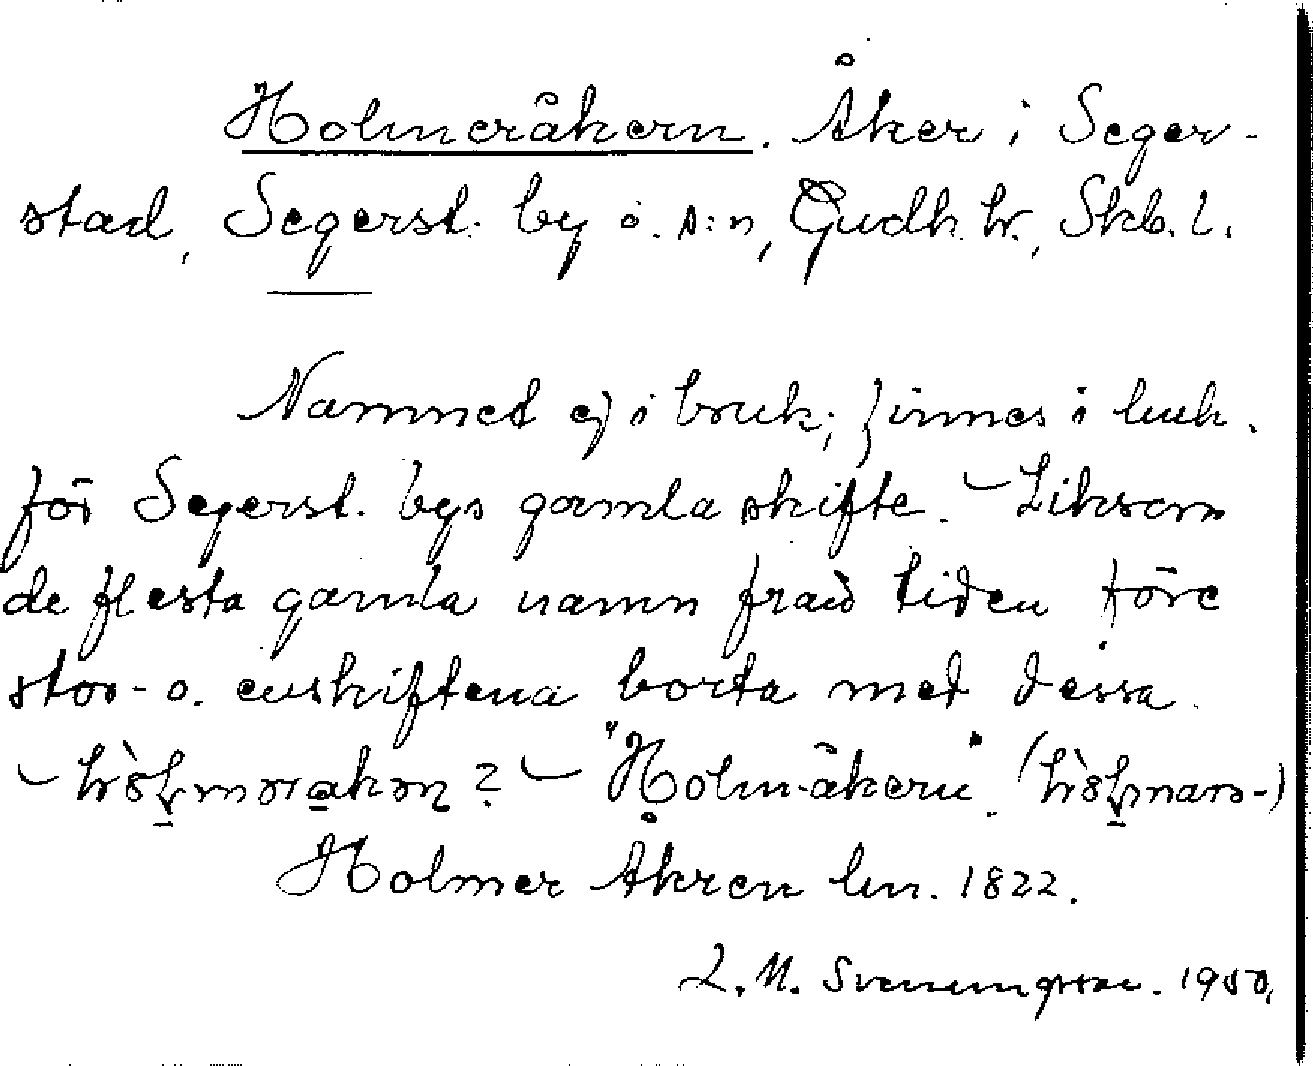 Holmeråkern. Åker i Seger-
stad, Segerst. by o. s:n, Gudh. hr., Skb. l.
Namnet ej i bruk; finnes i luh.
för Segerst. bys gamla skifte. – Liksom
de flesta gamla namn från tiden före
stor- o. enskiftena borta med dessa.
– ? – "Holm-åkern".
Holmer Åkren lm. 1822.
L. M. Svenungsson. 1950.